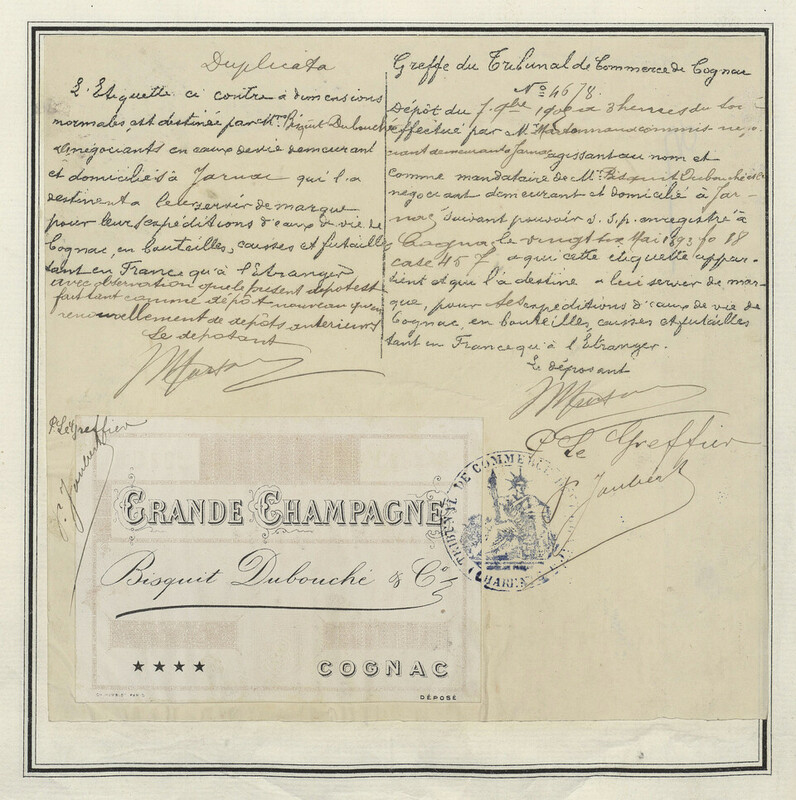 Duplicata
L'Etiquette ci contre à dimensions
normales, est destinée par Mrs Bisquit Dubouché
& Co négociants en eaux de vie demeurant
et domiciliés à Jarnac qui l'a
destinent à leur servir de marque
pour leurs expéditions d'eaux de vie de
Cognac, en bouteilles, caisses et futailles
tant en France qu'à l'Etranger
avec observation que le présent dépôt est
fait tant comme dépôt nouveau qu'en
renouvellement de dépôts antérieurs
Le déposant
Greffe du Tribunal de Commerce de Cognac
No 4678.
Dépôt du 7 9bre à 3 heures du soir
effectué par M. commis né-
gociant demeurant à Jarnac agissant au nom et
comme mandataire de Mrs Bisquit Dubouché et Co
négociant demeurant et domicilié à Jar-
nac, suivant pouvoir s.s.p. enregistré à
Cognac, le vingt six Mai 1893 fo 18
case 457, à qui cette étiquette appar-
tient et qui l'a destine à leur servir de mar-
que, pour ses expéditions d'eaux de vie de
Cognac, en bouteilles, caisses et futailles
tant en France qu'à l'Etranger.
Le déposant
P. Le Greffier
P. Joubert
P. Le Greffier
P. Joubert
TRIBUNAL DE COMMERCE
(CHARENTE)
GRANDE CHAMPAGNE
Bisquit Dubouché & Co
★★★★ COGNAC
DÉPOSÉ